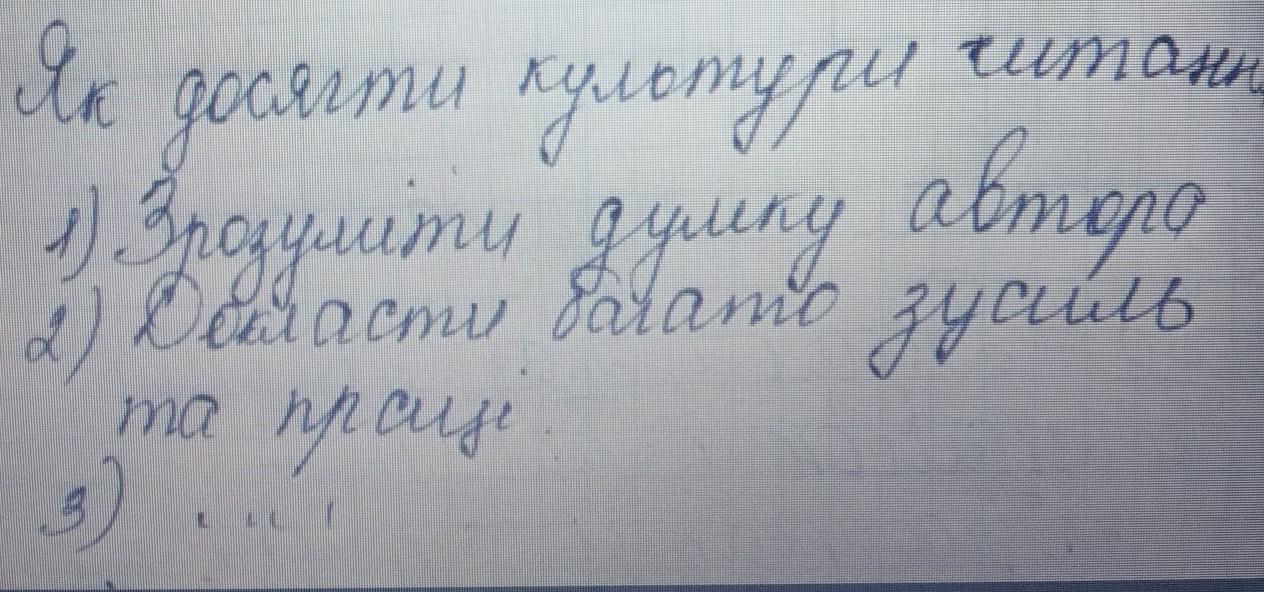 Як досягти культури читанн
1) Зрозуміти думку автора
2) Докласти багато зусиль
та праці
3) . . . .